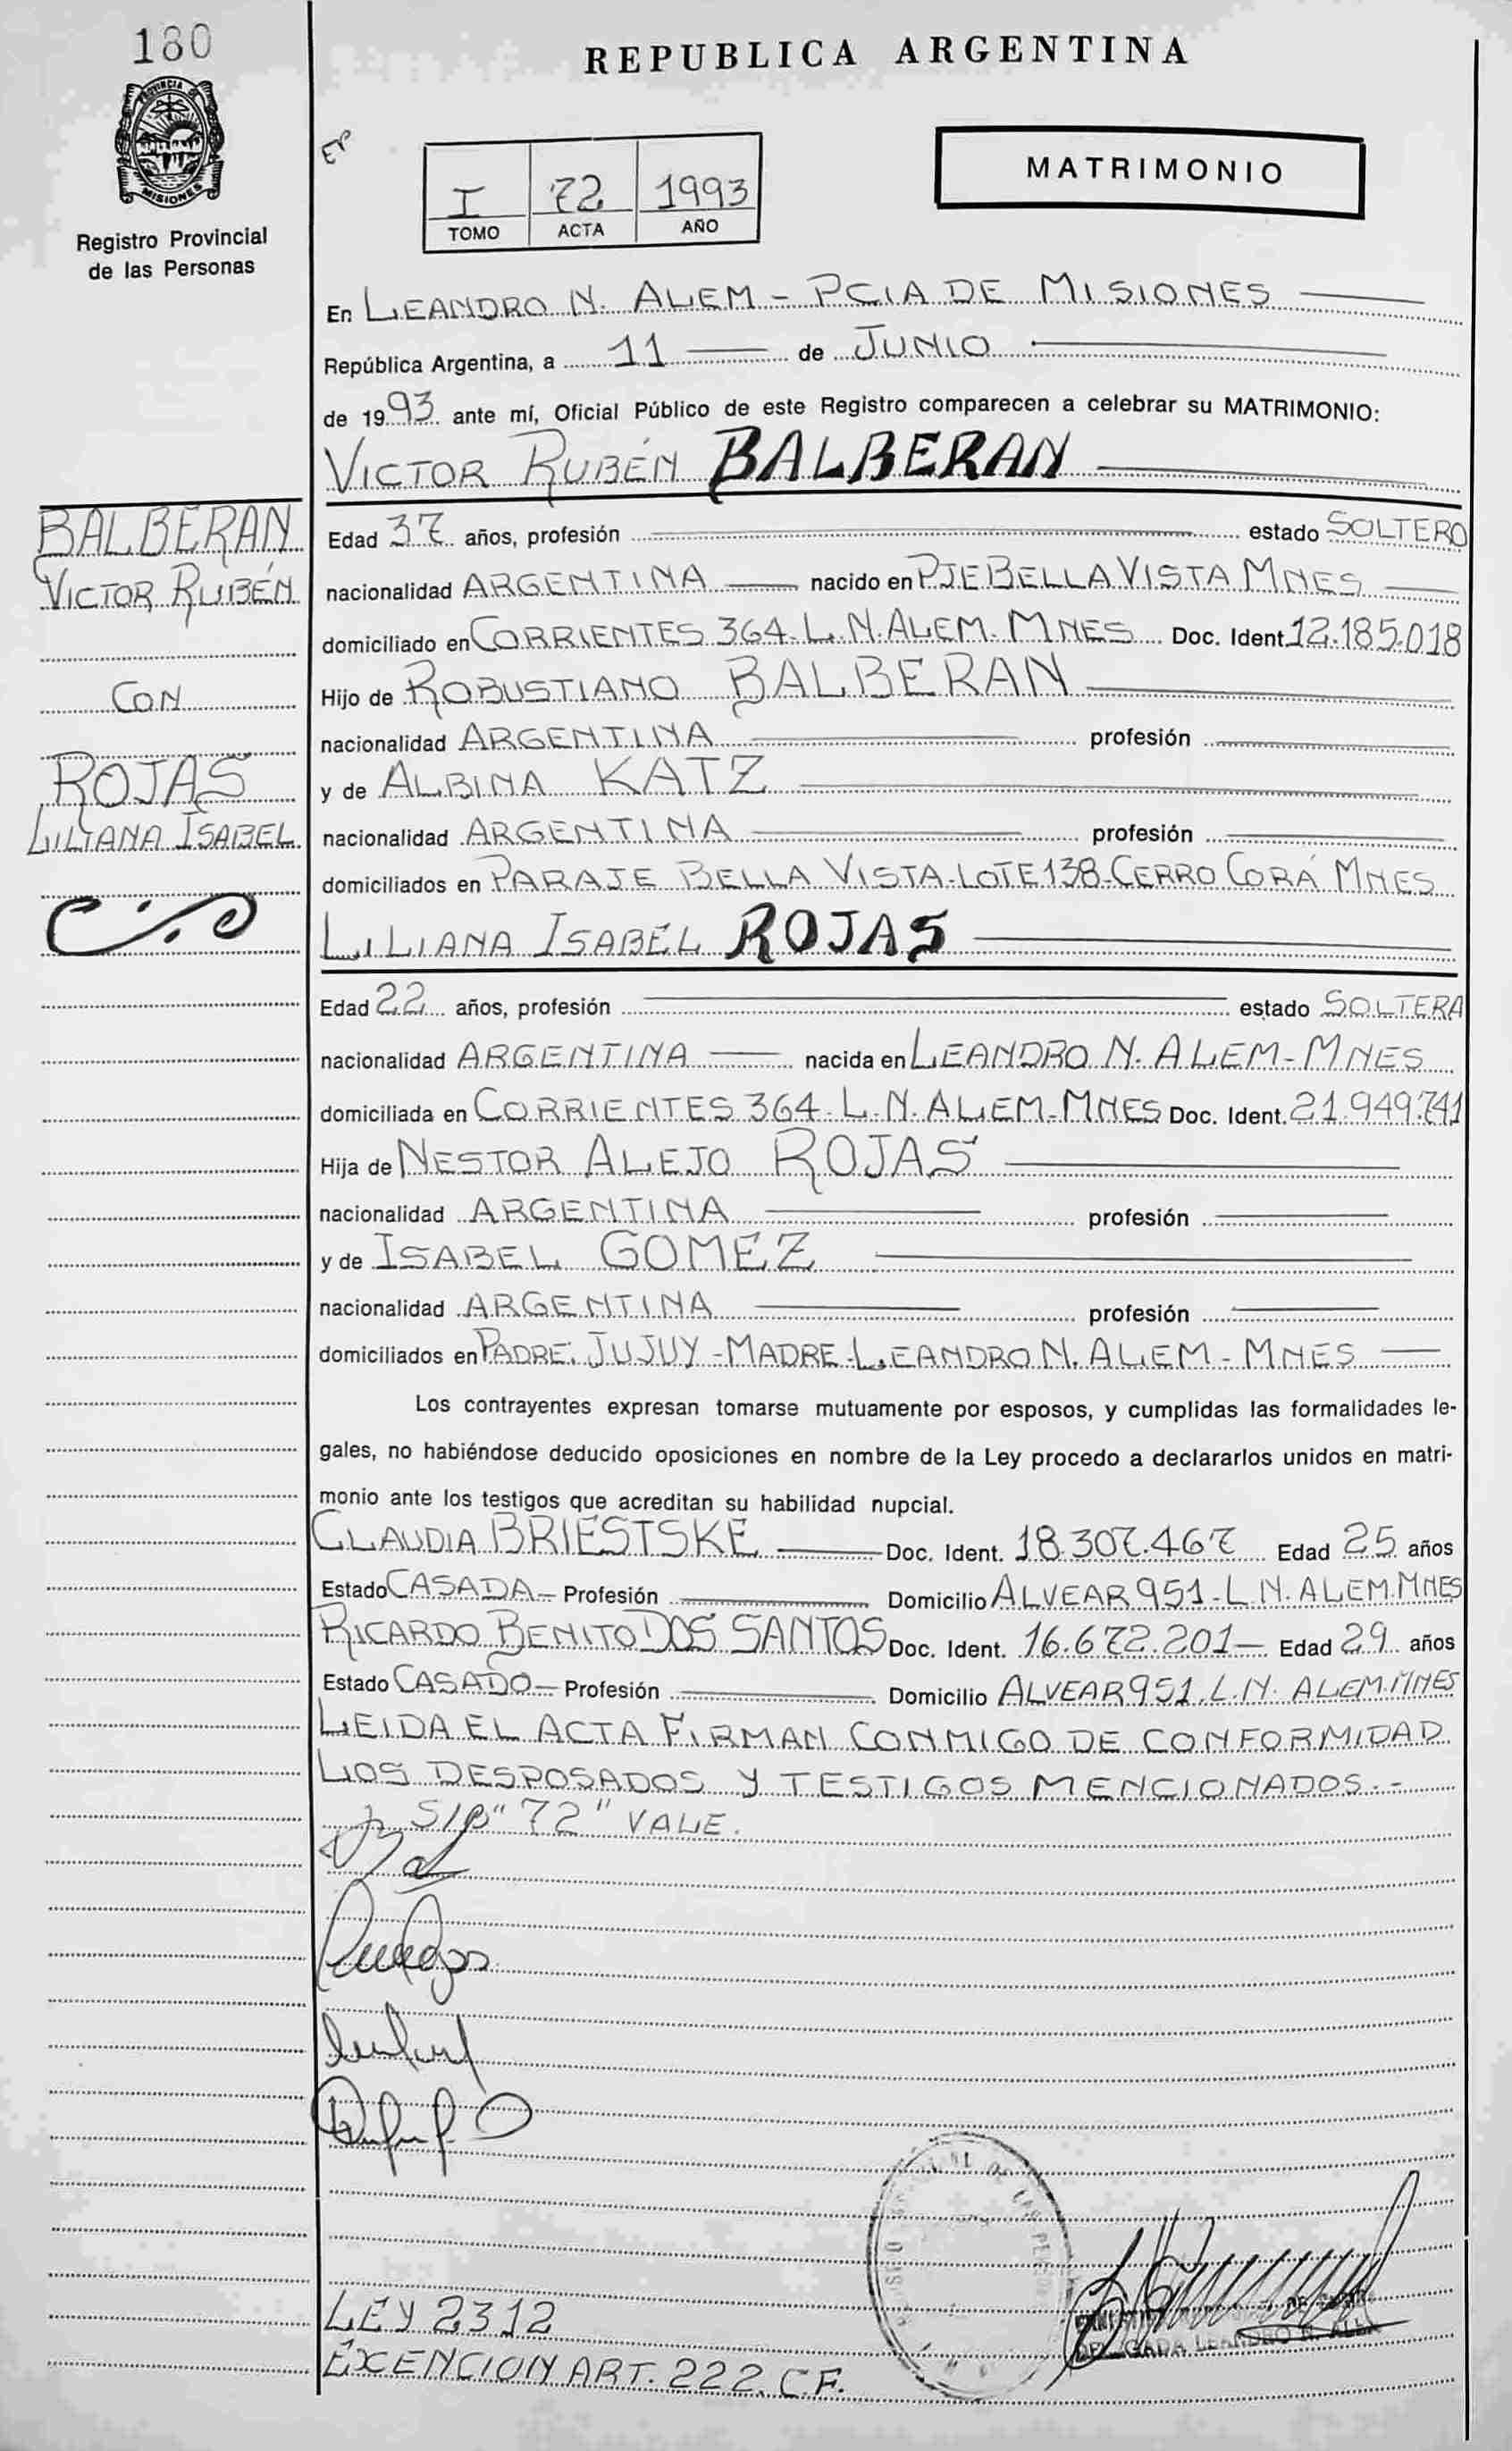 180
REPUBLICA ARGENTINA
PROVINCIA DE
MISIONES
Registro Provincial
de las Personas
I 72 1993
TOMO ACTA AÑO
MATRIMONIO
En LEANDRO N. ALEM - PCIA DE MISIONES
República Argentina, a 11 de JUNIO
de 1993 ante mí, Oficial Público de este Registro comparecen a celebrar su MATRIMONIO:
VICTOR RUBÉN BALBERAN
BALBERAN
VICTOR RUBÉN
CON
ROJAS
LILIANA ISABEL
Edad 37 años, profesión estado SOLTERO
nacionalidad ARGENTINA nacido en PJE BELLA VISTA MNES
domiciliado en CORRIENTES 364. L. N. ALEM. MNES Doc. Ident. 12.185.018
Hijo de ROBUSTIANO BALBERAN
nacionalidad ARGENTINA profesión
y de ALBINA KATZ
nacionalidad ARGENTINA profesión
domiciliados en PARAJE BELLA VISTA-LOTE 138-CERRO CORÁ MNES
LILIANA ISABEL ROJAS
Edad 22 años, profesión estado SOLTERA
nacionalidad ARGENTINA nacida en LEANDRO N. ALEM-MNES
domiciliada en CORRIENTES 364. L. N. ALEM-MNES Doc. Ident. 21.949.741
Hija de NESTOR ALEJO ROJAS
nacionalidad ARGENTINA profesión
y de ISABEL GOMEZ
nacionalidad ARGENTINA profesión
domiciliados en PADRE: JUJUY - MADRE-LEANDRO N. ALEM - MNES
Los contrayentes expresan tomarse mutuamente por esposos, y cumplidas las formalidades le-
gales, no habiéndose deducido oposiciones en nombre de la Ley procedo a declararlos unidos en matri-
monio ante los testigos que acreditan su habilidad nupcial.
CLAUDIA BRIESTSKE Doc. Ident. 18.307.467 Edad 25 años
Estado CASADA - Profesión Domicilio ALVEAR 951-L. N. ALEM. MNES
RICARDO BENITO DOS SANTOS Doc. Ident. 16.672.201 Edad 29 años
Estado CASADO - Profesión Domicilio ALVEAR 951. L. N. ALEM. MNES
LEIDA EL ACTA FIRMAN CONMIGO DE CONFORMIDAD
LOS DESPOSADOS Y TESTIGOS MENCIONADOS.-
S/p "72" VALE.
LEY 2312
EXENCION ART. 222. C.F.
LEANDRO N. ALEM